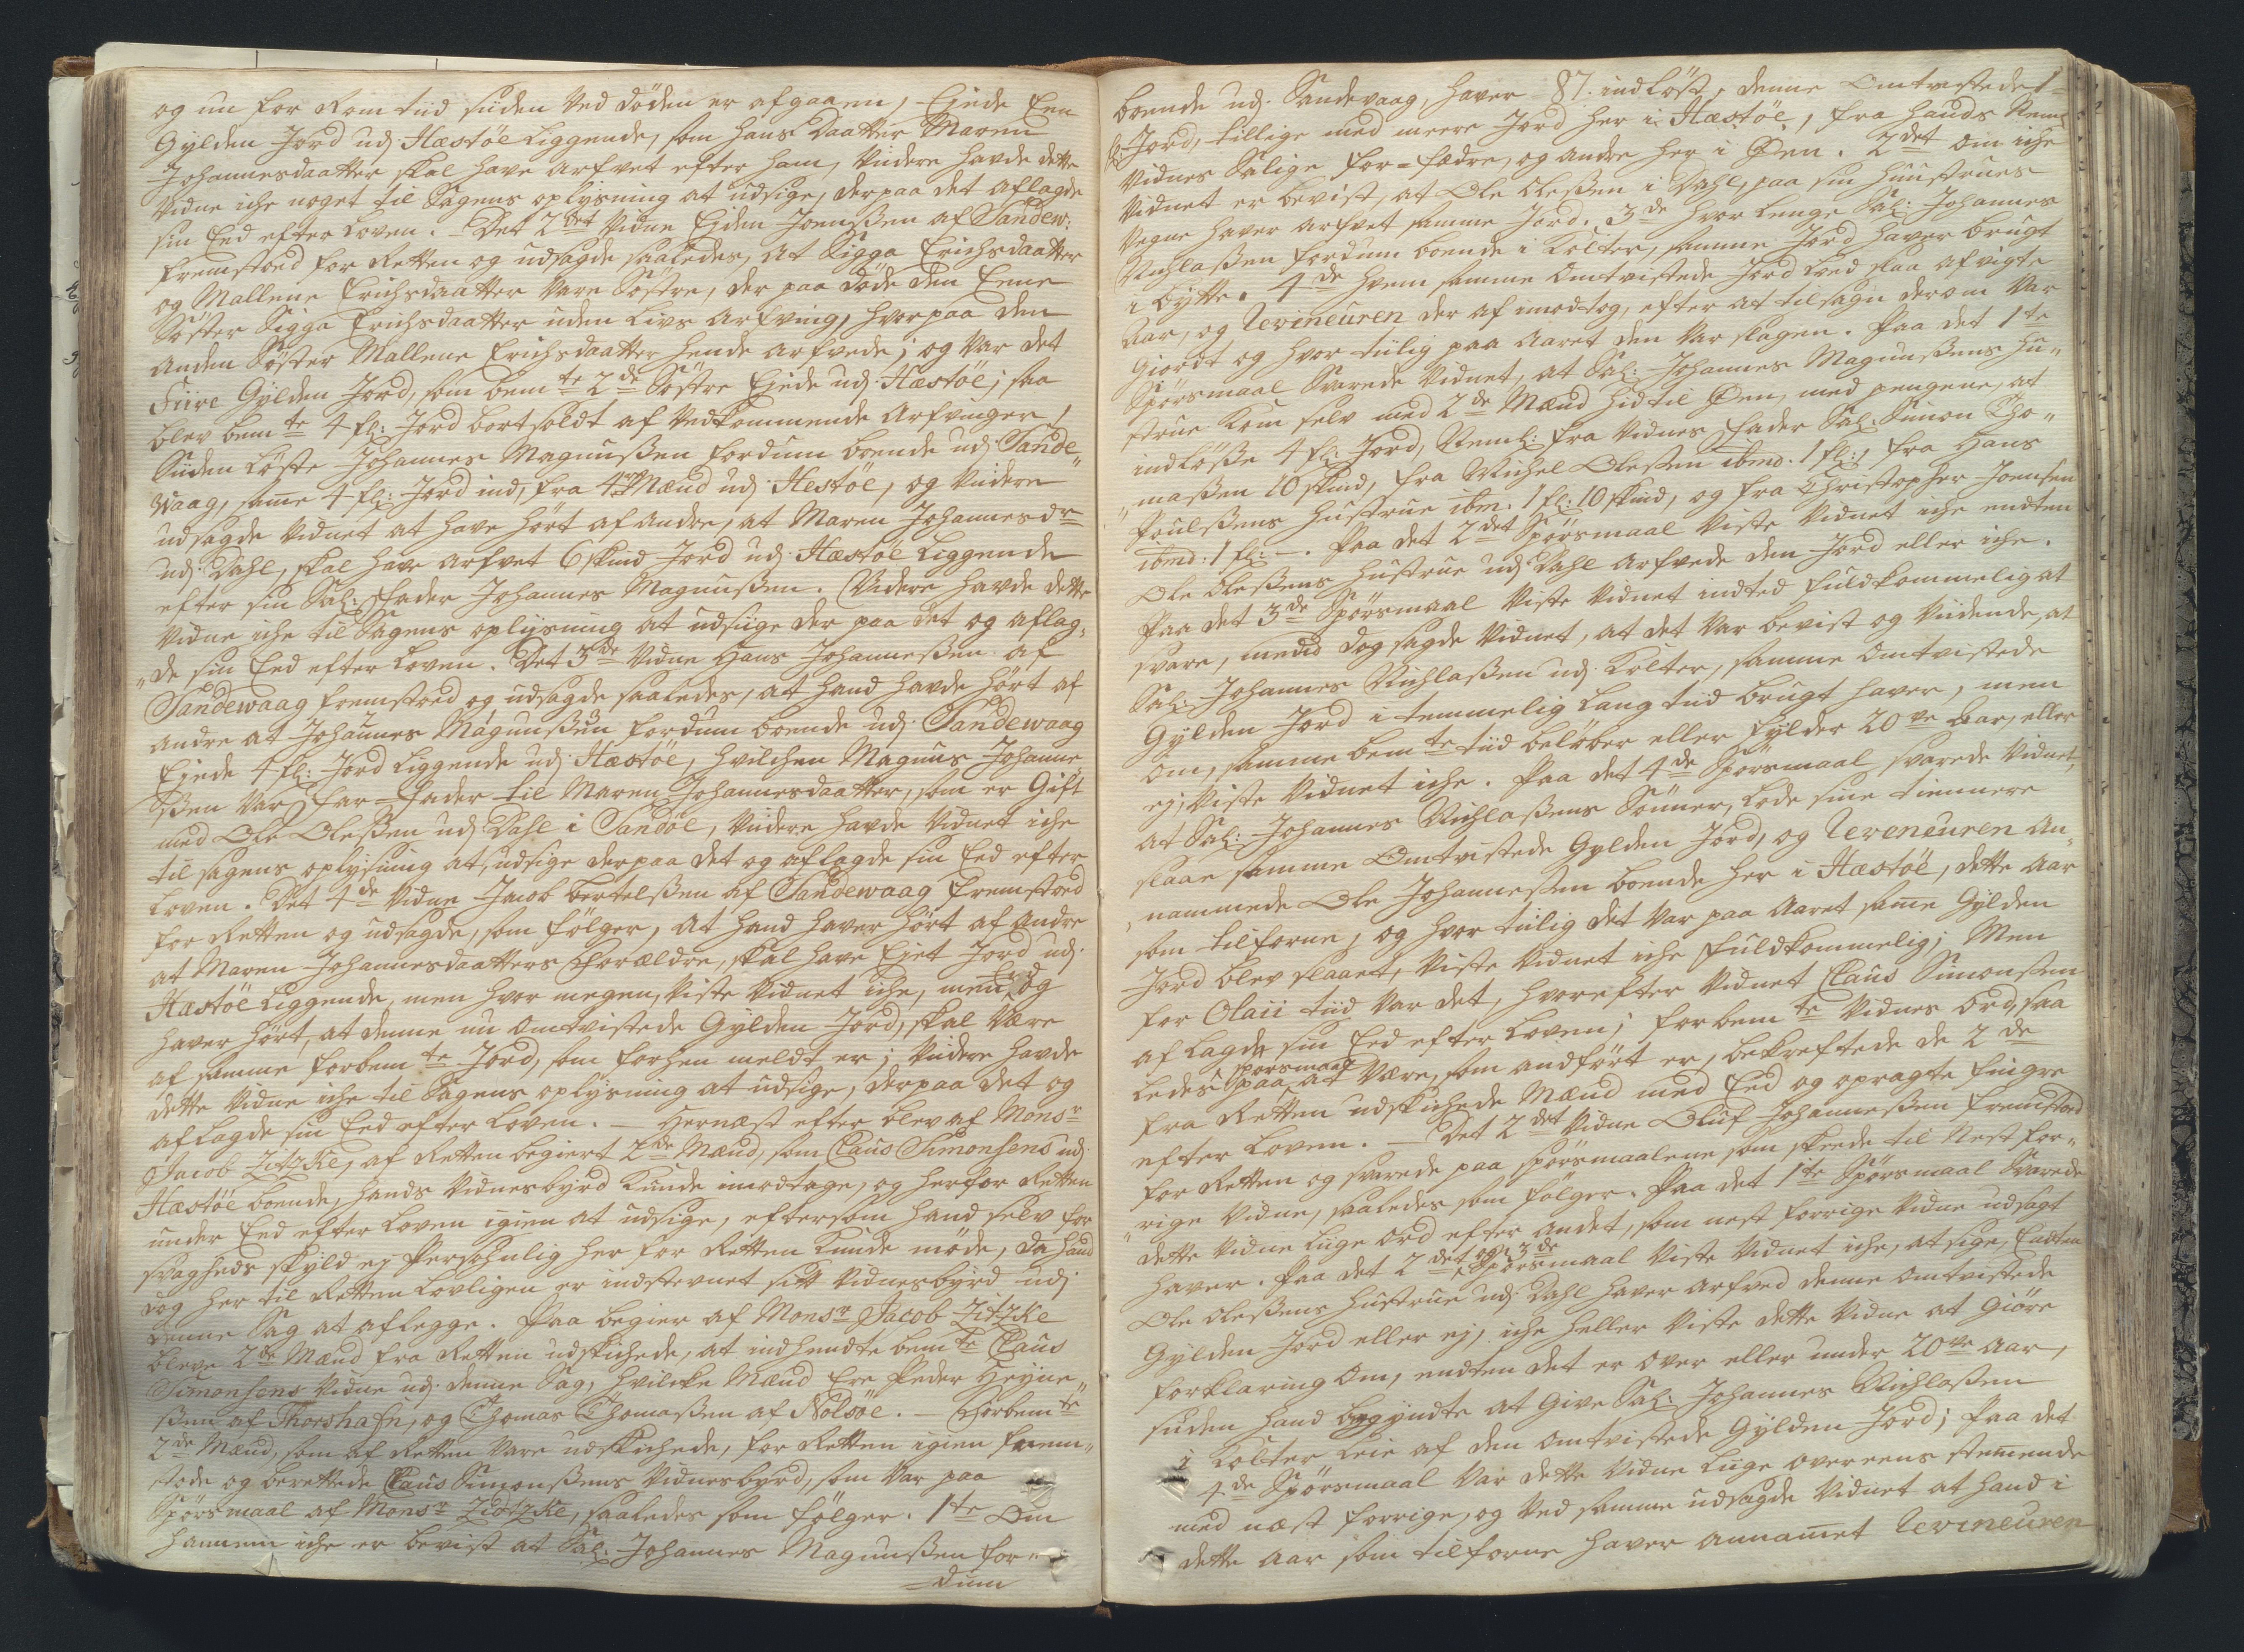 og nu for Rom tiid siiden Ved döden er afgaaen, Ejede Een
Gylden Jord udj Hæstöe Liggende, som hans Daatter Maren
Johannesdaatter skal have arfvet efter ham, Viidere havde dette
Vidne iche noget til Sagens oplysning at udsige, derpaa det aflagde
sin Eed efter Loven. Det 2det Vidne Ejden Joenßen af Sandew:
fremstoed for Retten og udsagde saaledes, at Sigga Erichsdaatter
og Mallene Erichsdaatter vare Söstre, der paa döde den Eene
Söster Sigga Erichsdaatter uden Livs Arfving, hvorpaa den
anden Söster Mallene Erichsdaatter hende arfvede; og var det
Fiire Gylden Jord, som bemte 2de Söstre Ejede udj Hæstöe; saa
blev bemte 4 fl: Jord bortsoldt af Vedkommende Arfvinger,
Siiden Löste Johannes Magnußen fordum boende udj Sande„
Waag, same 4 fl: Jord ind, fra 4re Mænd udj Hestöe, og Viidere
udsagde Vidnet at have hört af andre, at Maren Johannesdr
udj Dahl, skal have arfvet 6 skind Jord udj Hæstöe Liggende
efter sin Sal: Fader Johannes Magnußen. Videre havde dette
Vidne iche til Sagens opliisning at udsiige der paa det og aflag„
„de sin Eed efter Loven. Det 3de Vidne Hans Johanneßen af
Sandewaag fremstoed og udsagde saaledes, at hand havde hört af
andre at Johannes Magnußen fordum boende udj Sandewaag
Ejede 4 fl: Jord Liggende udj Hæstöe, hvilchen Magnus Johanne„
ßen var Far=Fader til Maren Johannesdaatter, som er Gift
med Ole Oleßen udj Dahl i Sandöe, Viidere havde Vidnet iche
til sagens oplysning at udsige derpaa det og aflagde sin Eed efter
Loven. Det 4de Vidne Jacob Bertelßen af Sandewaag fremstoed
for Retten og udsagde, som fölger, at hand haver hört af andre
at Maren Johannesdaatters Forældre, skal have Ejet Jord udj
Hæstöe Liggende, men hvor megen, viste Vidnet iche, men og
haver hört, at denne nu omtvistede Gylden Jord, skal Være
af samme forbemte Jord, som forhen meldt er; Viidere havde
dette Vidne iche til Sagens oplysning at udsige, derpaa det og
aflagde sin Eed efter Loven. — Hernæst efter blev af Monsr
Jacob Zitzke, af Retten begiert 2de Mænd, som Claus Simonsens udj
Hæstöe boende, hands Vidnesbyrd kunde imodtage, og herfor Retten
under Eed efter Loven igien at udsige, eftersom hand selv for
svagheds skyld ej Persohnlig her for Retten kunde möde, da hand
dog her til Retten Lovligen er indstevnet sitt Vidnesbyrd udj
denne Sag at aflegge. Paa begier af Monsr Jacob Zitzke
bleve 2de Mænd fra Retten udskichede, at indhendte bemte Claus
Simonsens Vidne udj denne Sag, hvilcke Mænd Ere Peder Heyne„
ßen af Thorshafn, og Thomas Thomaßen af Nolsöe. — Forbemte
2de Mænd, som af Retten vare udskichede, for Retten igien frem„
stode og berettede Claus Simonßens Vidnesbyrd, som var paa
Spörsmaal af Monsr Zidzke, saaledes som fölger. 1te Om
hannem iche er bevist at Sal: Johannes Magnußen for„
dum
boende udj Sandevaag, haver 87. indlöst, denne Omtvistede 1
fl: Jord, tillige med meere Jord her i Hæstöe, fra hands Neml:
Vidnes Salige For=fædre, og andre her i Øen. 2det om iche
Vidnet er bevist, at Ole Oleßen i Dahl, paa sin Huustrues
Vegne haver arfvet samme Jord. 3de hvor Lenge Sal: Johannes
Nichlaßen fordum boende i Kolter, samme Jord haver brugt
i bytte. 4de hvem samme Omtvistede Jord Lod slaa afvigte
Aar, og Uevineuren der af imodtog, efter at tilsagn derom var
Giordt og hvor tiilig paa Aaret den var slagen. Paa det 1te
Spörsmaal Svarede Vidnet, at Sal: Johannes Magnußens Hu„
strue kom selv med 2de Mænd hid til Øen, med pengene, at
indlöße 4 fl: Jord, Neml: fra Vidnes Fader Sal. Simon Tho„
„maßen 10 skind, fra Michel Oleßen ibmd. 1 fl:, fra Hans
Poulßens Hustrue ibm. 1 fl: 10 skind, og fra Christopher Joensen
ibmd. 1 fl: —. Paa det 2det Spörsmaal Viste Vidnet iche endten
Ole Oleßens Hustrue udj Dahl arfvede den Jord eller iche.
Paa det 3de Spörsmaal Viste Vidnet indted fuldkommelig at
svare, mend dog sagde Vidnet, at det var bevist og Vidende, at
Sal: Johannes Nichlaßen udj Kolter, samme Omtvistede
Gylden Jord i temmelig Lang tiid brugt haver, men
om, samme bemte tiid belöber eller fylder 20ve Aar, eller
ej, Viste Vidnet iche. Paa det 4de Spörsmaal svarede Vidnet,
at Sal: Johannes Nichlaßens Sönner, Lode sine tiennere
slaae samme Omtvistede Gylden Jord, og Ueveneuren An„
„nammede Ole Johanneßen boende her i Hæstöe, dette Aar
som tilforne, og hvor tiilig det var paa Aaret same Gylden
Jord blev slaaet, Viste Vidnet iche fuldkommelig; Men
for Olaii tiid var det, hvorefter Vidnet Claus Simonßen
aflagde sin Eed efter Loven; forbemte Vidnes ord, saa
Ledes spörsmaal paa at Være, som andfört er, bekreftede de 2de
fra Retten udskichede Mænd med Eed og opragte fingre
efter Loven. — Det 2det Vidne Oluf Johanneßen fremstod
for Retten og svarede paa spörsmaalene som skeede til Nest for„
„rige Vidne, saaledes som fölger. Paa det 1te Spörsmaal Svarede
dette Vidne Liige ord efter andet, som nest forrige Vidne udsagt
haver. Paa det 2det og 3de Spörsmaal Viste Vidnet iche, at sige, Endten
Ole Oleßens Hustrue udj Dahl haver arfved denne Omtvistede
Gylden Jord eller ej, iche heller Viste dette Vidne at Giöre
forklaring om, endten det er over eller under 20ve Aar,
siiden hand begyndte at Give Sal: Johannes Nichlaßen
i Kolter Leie af den omtvistede Gylden Jord; Paa det
4de Spörsmaal Var dette Vidne Liige overeens stemmende
med næst forrige, og Ved samme udsagde Vidnet at hand i
dette Aar som tilforne haver annamet Uevineuren